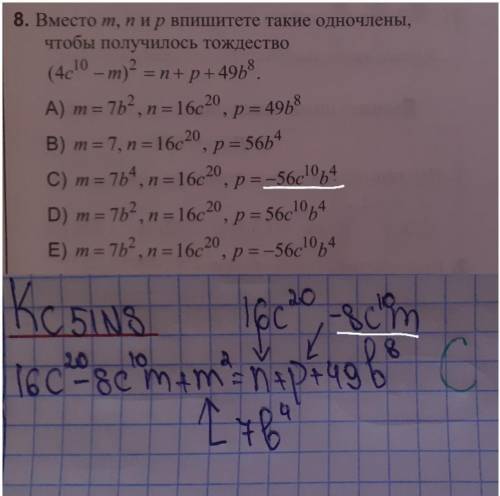 8. Вместо m, n и p впишитете такие одночлены,
чтобы получилось тождество
(4c¹⁰ – m)² = n + p + 49b⁸.
A) m = 7b², n = 16c²⁰, p = 49b⁸
B) m = 7, n = 16c²⁰, p = 56b⁴
C) m = 7b⁴, n = 16c²⁰, p = –56c¹⁰b⁴
D) m = 7b², n = 16c²⁰, p = 56c¹⁰b⁴
E) m = 7b², n = 16c²⁰, p = –56c¹⁰b⁴
Кс51N8 16c²⁰ -8c¹⁰m
16c²⁰-8c¹⁰m+m²=n+p+49b⁸ C
7b⁴